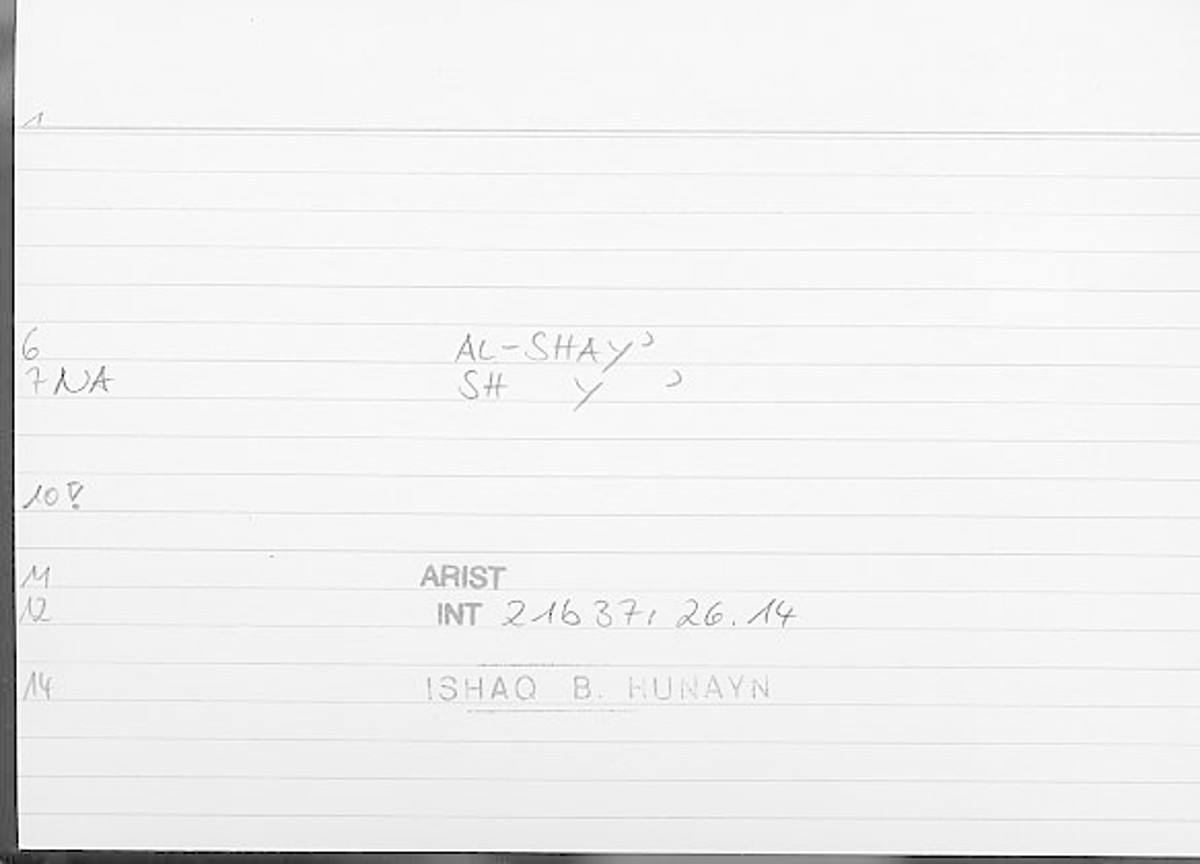 1
6 AL-SHAYʾ
7 NA SH Y ʾ
10 !
11 ARIST
12 INT 21b37, 26.14
14 ISHAQ B. HUNAYN